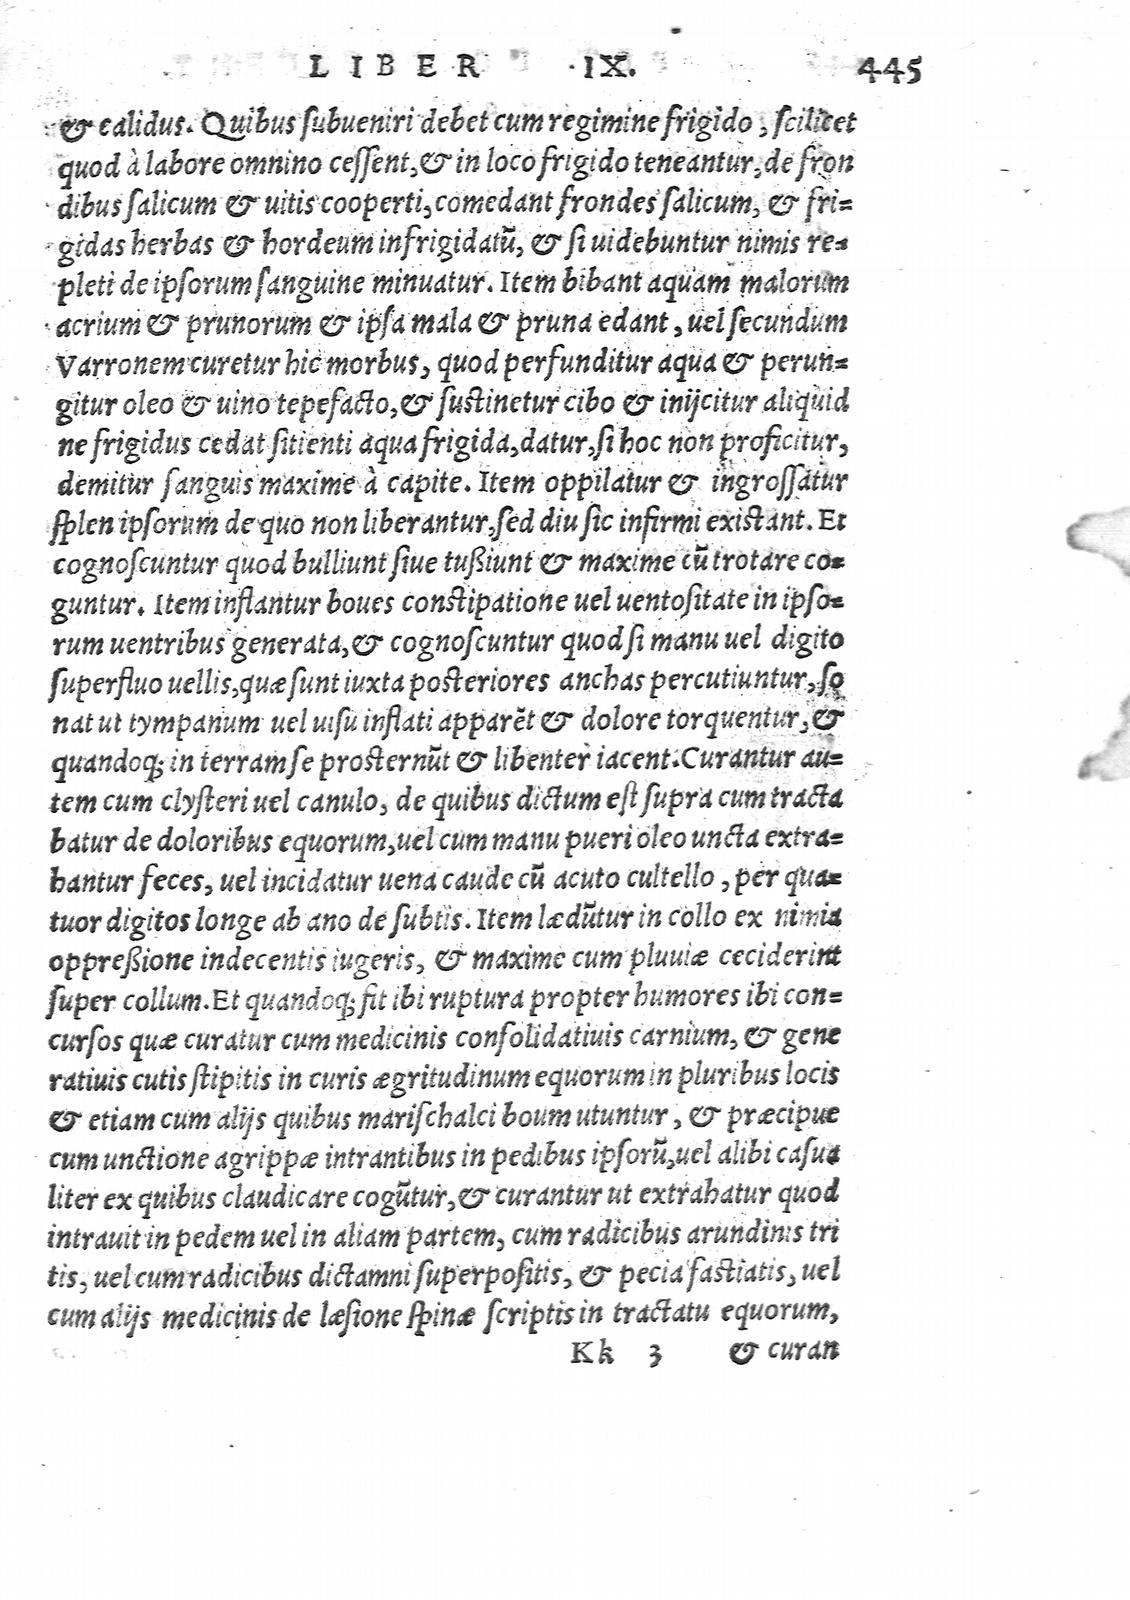 LIBER IX. 445
& calidus. Quibus ſubueniri debet cum regimine frigido, ſcilicet
quod à labore omnino ceſſent, & in loco frigido teneantur, de fron
dibus ſalicum & uitis cooperti, comedant frondes ſalicum, & fri=
gidas herbas & hordeum infrigidatũ, & ſi uidebuntur nimis re=
pleti de ipſorum ſanguine minuatur. Item bibant aquam malorum
acrium & prunorum & ipſa mala & pruna edant, uel ſecundum
Varronem curetur hic morbus, quod perfunditur aqua & perun=
gitur oleo & uino tepefacto, & ſuſtinetur cibo & inijcitur aliquid
ne frigidus cedat ſitienti aqua frigida, datur, ſi hoc non proficitur,
demitur ſanguis maxime à capite. Item oppilatur & ingroſſatur
ſplen ipſorum de quo non liberantur, ſed diu ſic infirmi exiſtant. Et
cognoſcuntur quod bulliunt ſiue tußiunt & maxime cũ trotare co=
guntur. Item inflantur boues conſtipatione uel uentoſitate in ipſo=
rum uentribus generata, & cognoſcuntur quod ſi manu uel digito
ſuperfluo uellis, quæ ſunt iuxta poſteriores anchas percutiuntur, ſo
nat ut tympanum uel uiſu inflati apparẽt & dolore torquentur, &
quandoq; in terram ſe proſternũt & libenter iacent. Curantur au=
tem cum clyſteri uel canulo, de quibus dictum eſt ſupra cum tracta
batur de doloribus equorum, uel cum manu pueri oleo uncta extra=
hantur feces, uel incidatur uena caude cũ acuto cultello, per qua=
tuor digitos longe ab ano de ſubtis. Item lædũtur in collo ex nimia
oppreßione indecentis iugeris, & maxime cum pluuiæ ceciderint
ſuper collum. Et quandoq; fit ibi ruptura propter humores ibi con=
curſos quæ curatur cum medicinis conſolidatiuis carnium, & gene
ratiuis cutis ſtipitis in curis ægritudinum equorum in pluribus locis
& etiam cum alijs quibus mariſchalci boum utuntur, & præcipue
cum unctione agrippæ intrantibus in pedibus ipſorũ, uel alibi caſua
liter ex quibus claudicare cogũtur, & curantur ut extrahatur quod
intrauit in pedem uel in aliam partem, cum radicibus arundinis tri
tis, uel cum radicibus dictamni ſuperpoſitis, & pecia faſtiatis, uel
cum alijs medicinis de læſione ſpinæ ſcriptis in tractatu equorum,
Kk 3 & curan